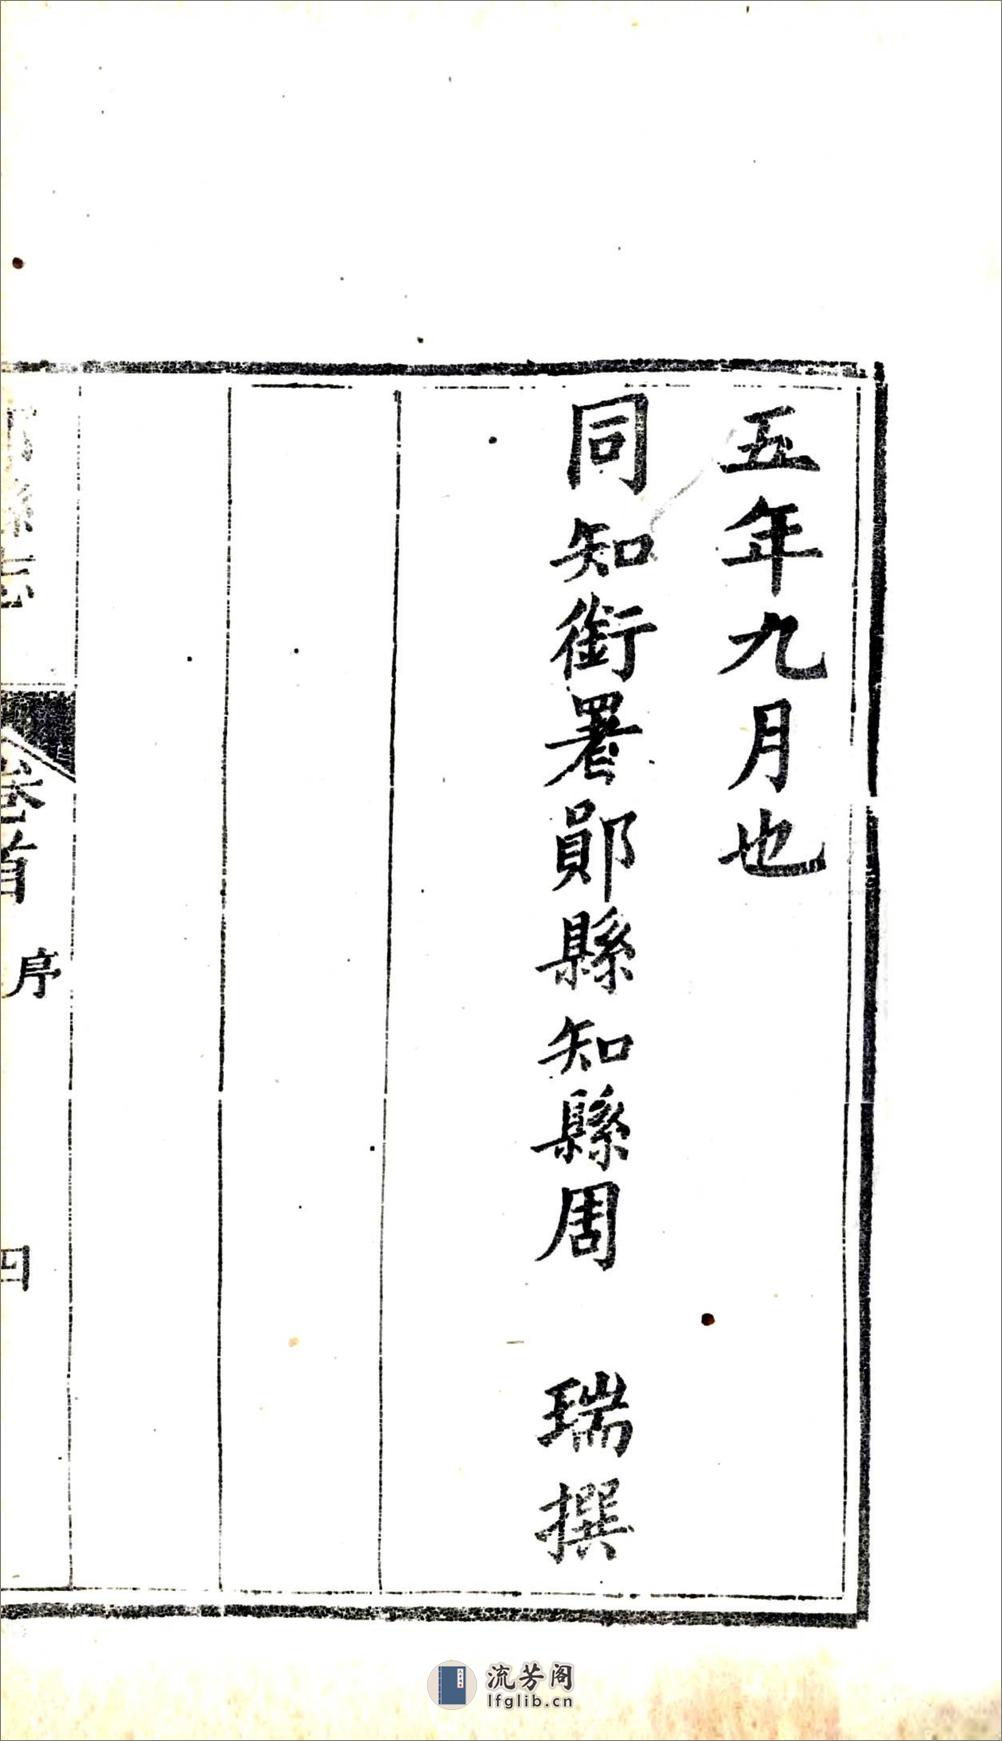 五年九月也
同知銜署鄖縣知縣周 瑞撰
縣志
卷首
序
四
流芳阁
lfglib.cn